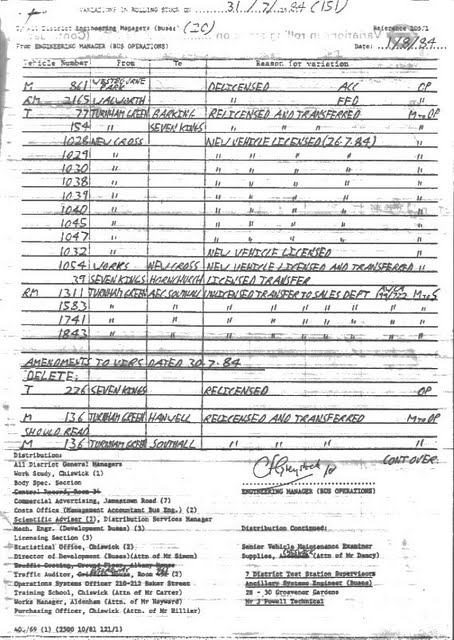 VARIATIONS IN ROLLING STOCK ON 31/7/84 (151)
All District Engineering Managers (Buses) (20) Reference 205/1
From ENGINEERING MANAGER (BUS OPERATIONS) Date: 1/8/84
Vehicle Number From To Reason for variation
M 861 WESTBOURNE PARK DELICENSED ACC OP
RM 2165 WALWORTH " FFD "
T 77 TURNHAM GREEN BARKING RELICENSED AND TRANSFERRED M to OP
154 " SEVEN KINGS " " " "
1028 NEW CROSS NEW VEHICLE LICENSED (26.7.84) "
1029 " " " " " "
1030 " " " " " "
1038 " " " " " "
1039 " " " " " "
1040 " " " " " "
1045 " " " " " "
1047 " " " " " "
1032 " NEW VEHICLE LICENSED "
1054 WORKS NEW CROSS NEW VEHICLE LICENSED AND TRANSFERRED "
39 SEVEN KINGS HORNCHURCH LICENSED TRANSFER "
RM 1311 TURNHAM GREEN AEC SOUTHALL UNLICENSED TRANSFER TO SALES DEPT M to S
1583 " " " " " " " " "
1741 " " " " " " " " "
1843 " " " " " " " " "
AMENDMENTS TO VIRS DATED 30.7.84
DELETE:
T 226 SEVEN KINGS RELICENSED OP
M 136 TURNHAM GREEN HANWELL RELICENSED AND TRANSFERRED M to OP
SHOULD READ
M 136 TURNHAM GREEN SOUTHALL " " " "
CONT OVER.
Distribution:
All District General Managers
Work Study, Chiswick (1)
Body Spec. Section
Central Record, Room 34
ENGINEERING MANAGER (BUS OPERATIONS)
Commercial Advertising, Jamestown Road (7)
Costs Office (Management Accountant Bus Eng.) (2)
Scientific Adviser (2), Distribution Services Manager
Mech. Engr. (Development Buses) (3) Distribution Continued:
Licensing Section (3)
Statistical Office, Chiswick (2) Senior Vehicle Maintenance Examiner
Director of Development (Buses)(Attn of Mr Simon) Supplies, Aldenham (Attn of Mr Dancy)
Traffic Costing, Ground Floor, Albany House
Traffic Auditor, Griffith House, Room (2) 7 District Test Station Supervisors
Operations Systems Officer 210-212 Baker Street Ancillary Systems Engineer (Buses)
Training School, Chiswick (Attn of Mr Carter) 28 - 30 Grosvenor Gardens
Works Manager, Aldenham (Attn of Mr Hayward) Mr J Powell Technical
Purchasing Officer, Chiswick (Attn of Mr Hillier)
40./69 (1) (2500 10/81 121/1)